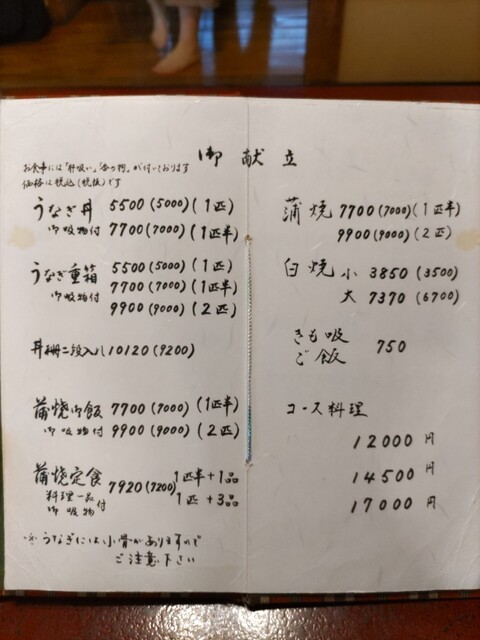 御献立
お食事には「肝吸い」「香の物」が付いております
価格は税込(税抜)です
うなぎ丼 5500(5000)(1匹)
御吸物付 7700(7000)(1匹半)
うなぎ重箱 5500(5000)(1匹)
御吸物付 7700(7000)(1匹半)
9900(9000)(2匹)
丼 二段入し 10120(9200)
蒲焼御飯 7700(7000)(1匹半)
御吸物付 9900(9000)(2匹)
蒲焼定食 7920(7200) 1匹半+1品
料理一品 御吸物 付 1匹+3品
※うなぎには小骨がありますので
ご注意下さい
蒲焼 7700(7000)(1匹半)
9900(9000)(2匹)
白焼 小 3850(3500)
大 7370(6700)
きも吸
ご飯 750
コース料理
12000円
14500円
17000円